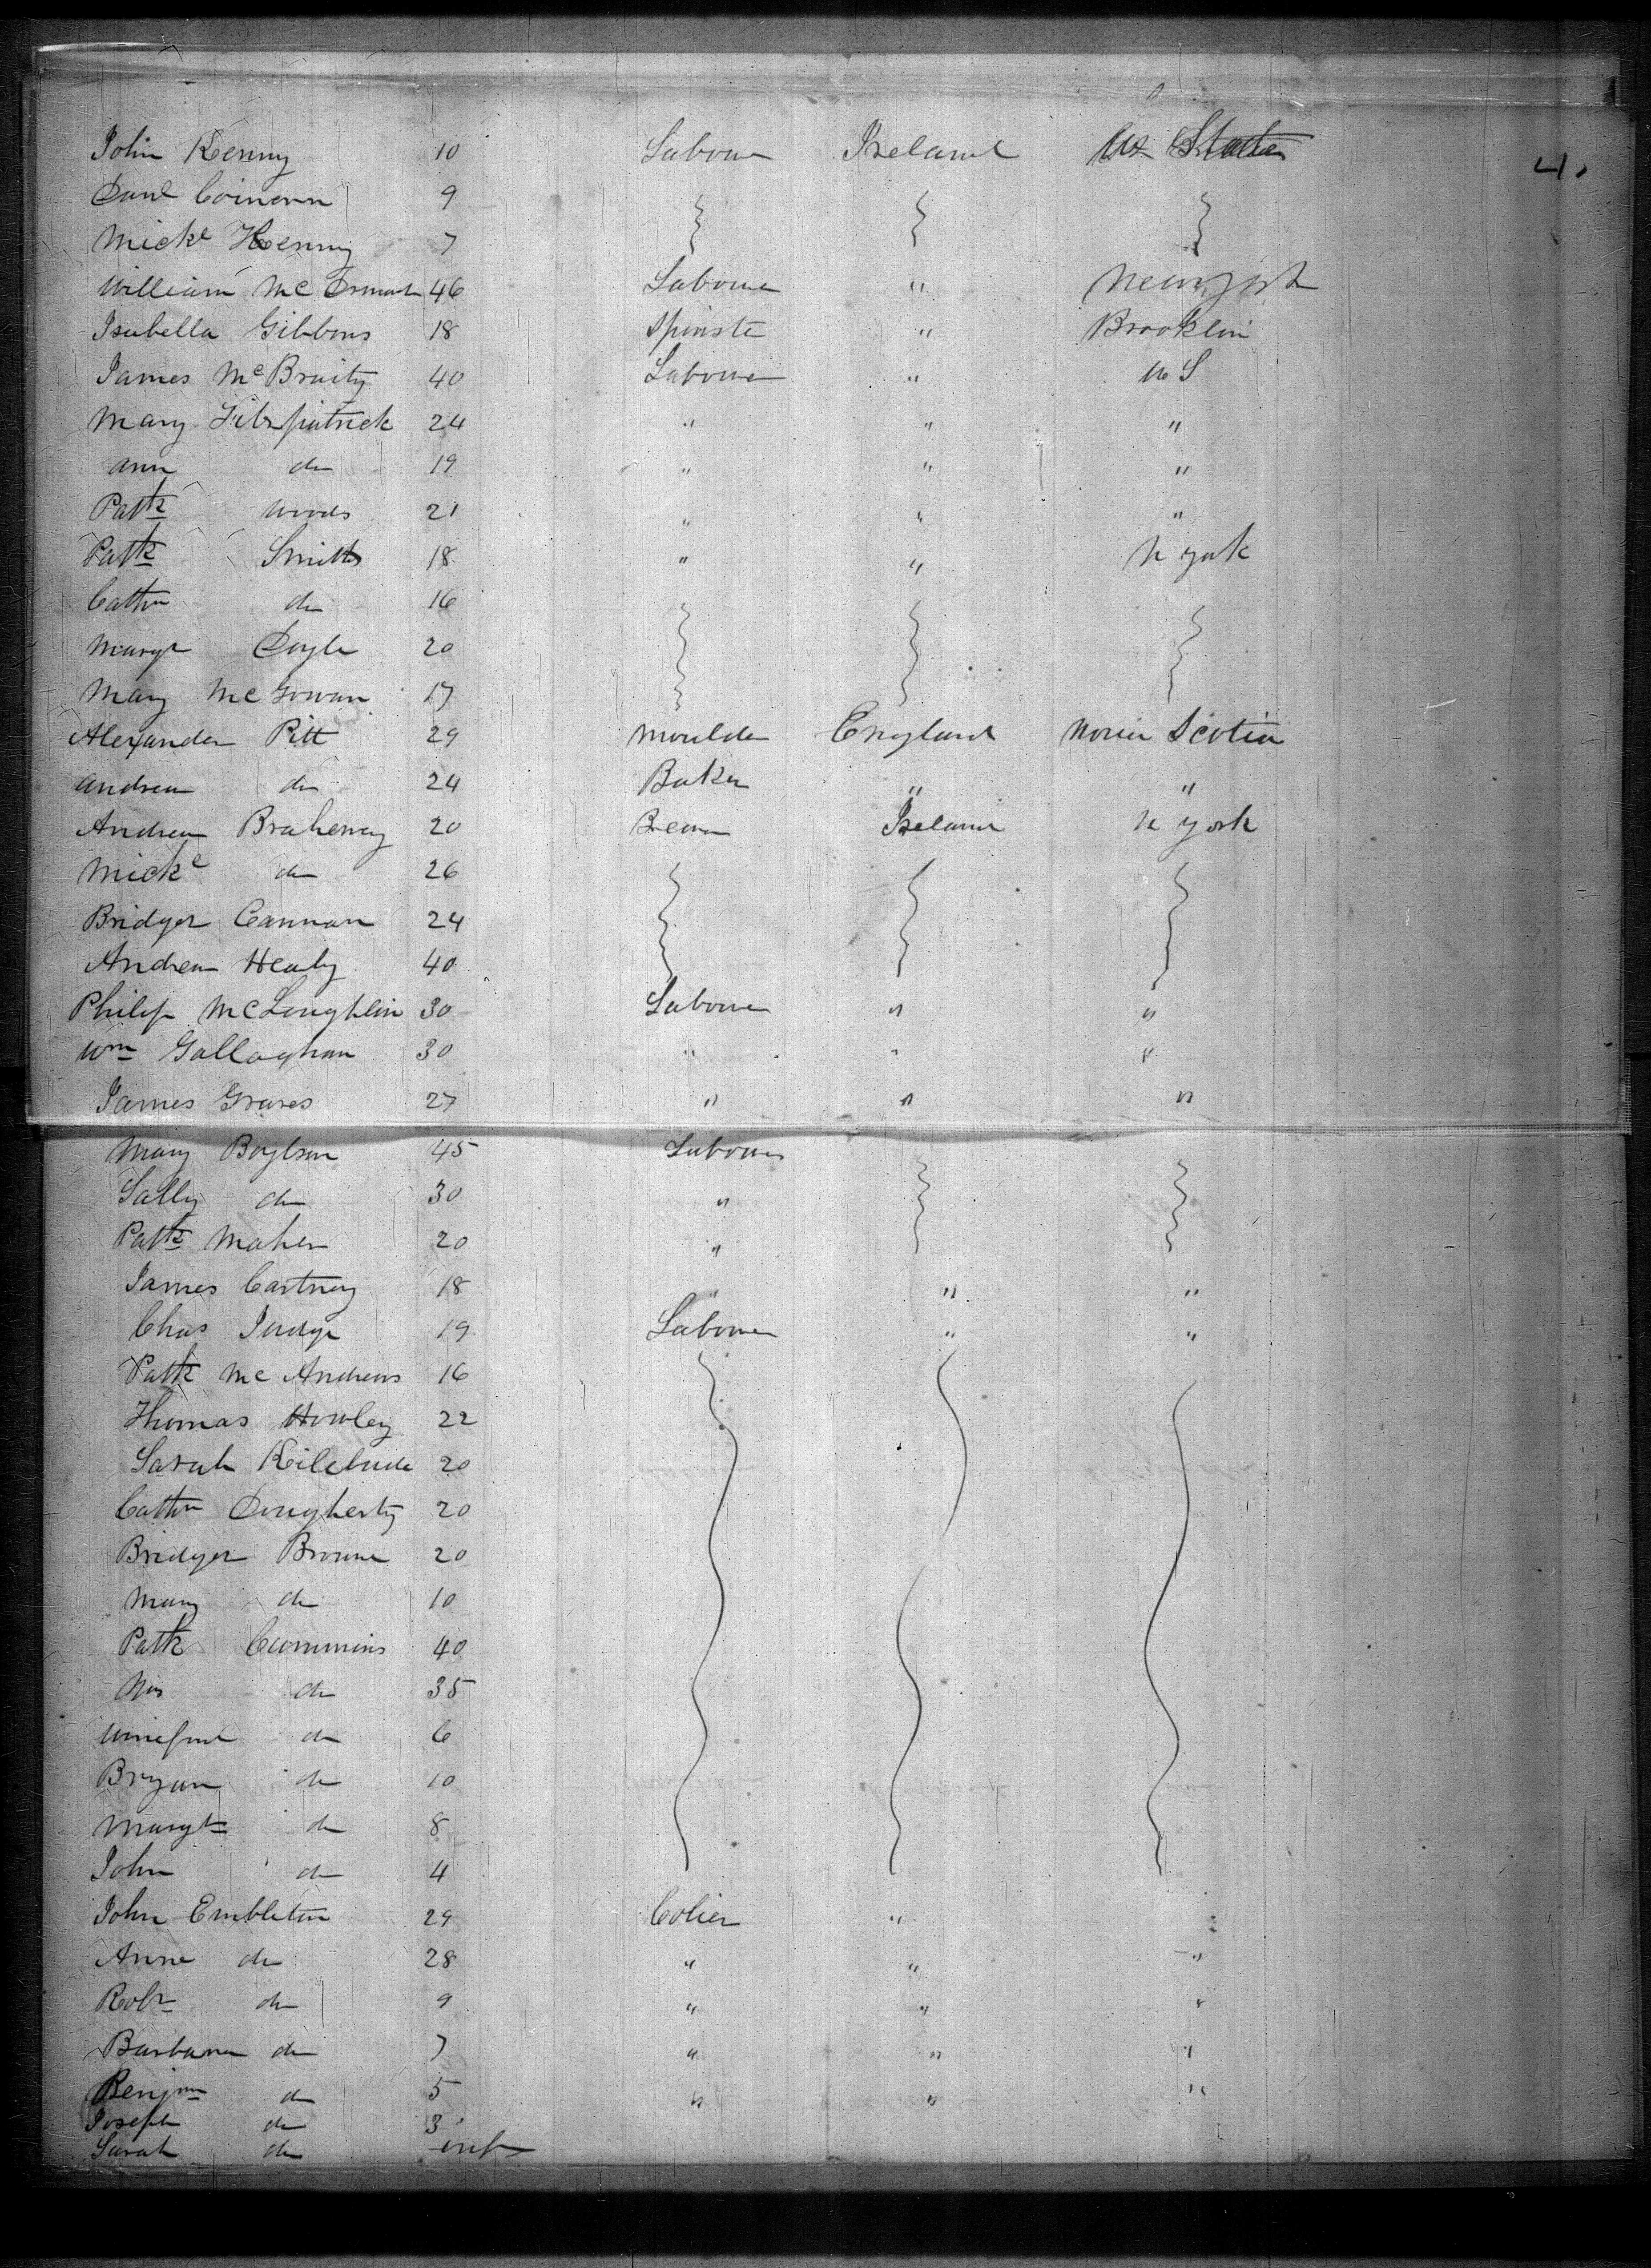 4.
John Kenny 10 Labour Ireland Us States
Danl 9
Mickl Kenny 7
William Mc 46 Labour " New york
Isabella Gibbons 18 Spinste " Brooklin
James McBraity 40 Labour " U S
Mary Fitzpatrick 24 " " "
Ann do 19 " " "
Patk Woods 21 " " "
Patk Smith 18 " " N york
Cathn do 16
Margt Doyle 20
Mary McGowan 17
Alexander Pitt 29 Moulder England Nova Scotia
Andrew do 24 Baker " "
Andrew Braheney 20 Ireland N york
Mickl do 26
Bridget Cannon 24
Andrew Healy 40
Philip McLoughlin 30 Labour " "
Wm Gallaghan 30 " " "
James Graves 27 " " "
Mary Boylson 45 Labour
Sally do 30 "
Patk Maher 20 "
James Cartney 18 " " "
Chas Judge 19 Labour " "
Patk Mc Andrews 16
Thomas Howley 22
Sarah 20
Cathn Dougherty 20
Bridget Browne 20
Mary do 10
Patk Cummins 40
Mrs do 35
Winefred do 6
Bryan do 10
Margt do 8
John do 4
John Embleton 29 Colier " "
Anne do 28 " " "
Robt do 9 " " "
Barbara do 7 " " "
Benjmn do 5 " " "
Joseph do 3
Sarah do inft